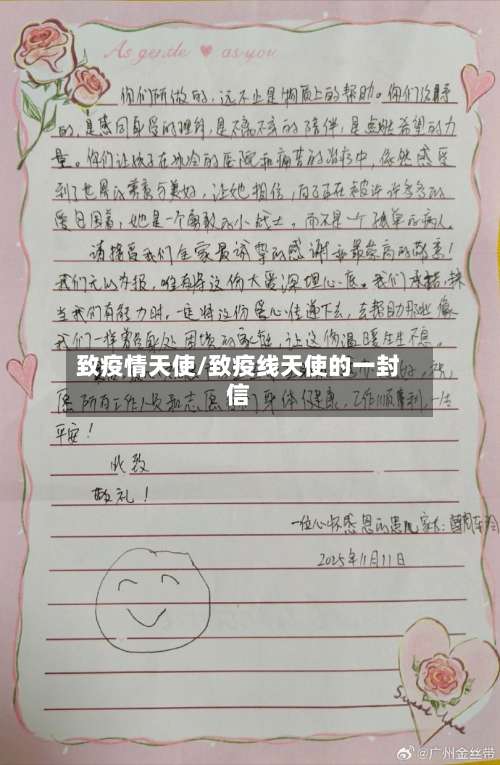 As gentle as you
你们所做的,远不止是物质上的帮助。你们给予
的,是感同身受的理解,是不离不弃的陪伴,是点燃希望的力
量。你们让孩子在冰冷的医院和痛苦的治疗中,依然感受
到了世界的善意与美好,让她相信,自己正在被许许多多的
爱包围着,她是一个勇敢的小战士,而不是一个孤单的病人。
请接受我们全家最诚挚的感谢和最崇高的敬意!
我们无以为报,唯有将这份大爱深埋心底。我们承诺,
当我们有能力时,一定将这份爱心传递下去,去帮助那些像
我们一样身处困境的家庭,让这份温暖生生不息。
致疫情天使/致疫线天使的一封
信
愿所有工作人员和志愿者们身体健康,工作顺利,一生
平安!
此致
敬礼!
一位心怀感恩的患儿家长:
2025年11月11日
Sweet love
@广州金丝带